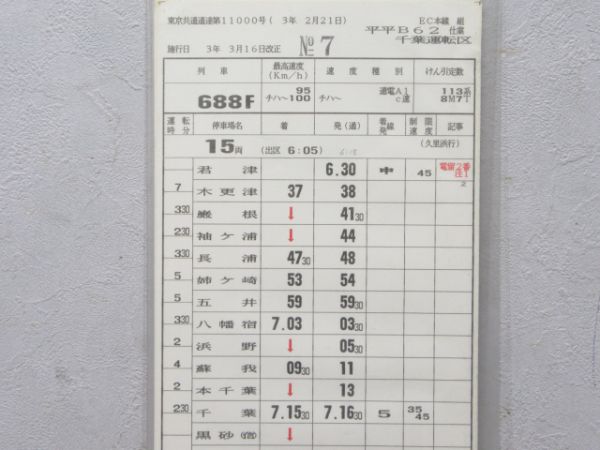 東京共通運達第11000号( 3年 2月21日) EC本線 組
平平B62 仕業
施行日 3年 3月16日改正 №7 千葉運転区
列車 最高速度(Km/h) 速度種別 けん引定数
688F 95 通電A1 113系
チハ〜100 チハ〜 c速 8M7T
運転時分 停車場名 着 発(通) 着発線 制限速度 記事
15両 (出区 6:05) 6:18 (久里浜行)
君津 6.30 中 45 電留2番
7 木更津 37 38 2
330 巌根 ↓ 4130
230 袖ケ浦 ↓ 44
330 長浦 4730 48
5 姉ケ崎 53 54
5 五井 59 5930
330 八幡宿 7.03 0330
2 浜野 ↓ 0530
4 蘇我 0930 11
2 本千葉 ↓ 13
230 千葉 7.1530 7.1630 5 35 45
黒砂(信) ↓